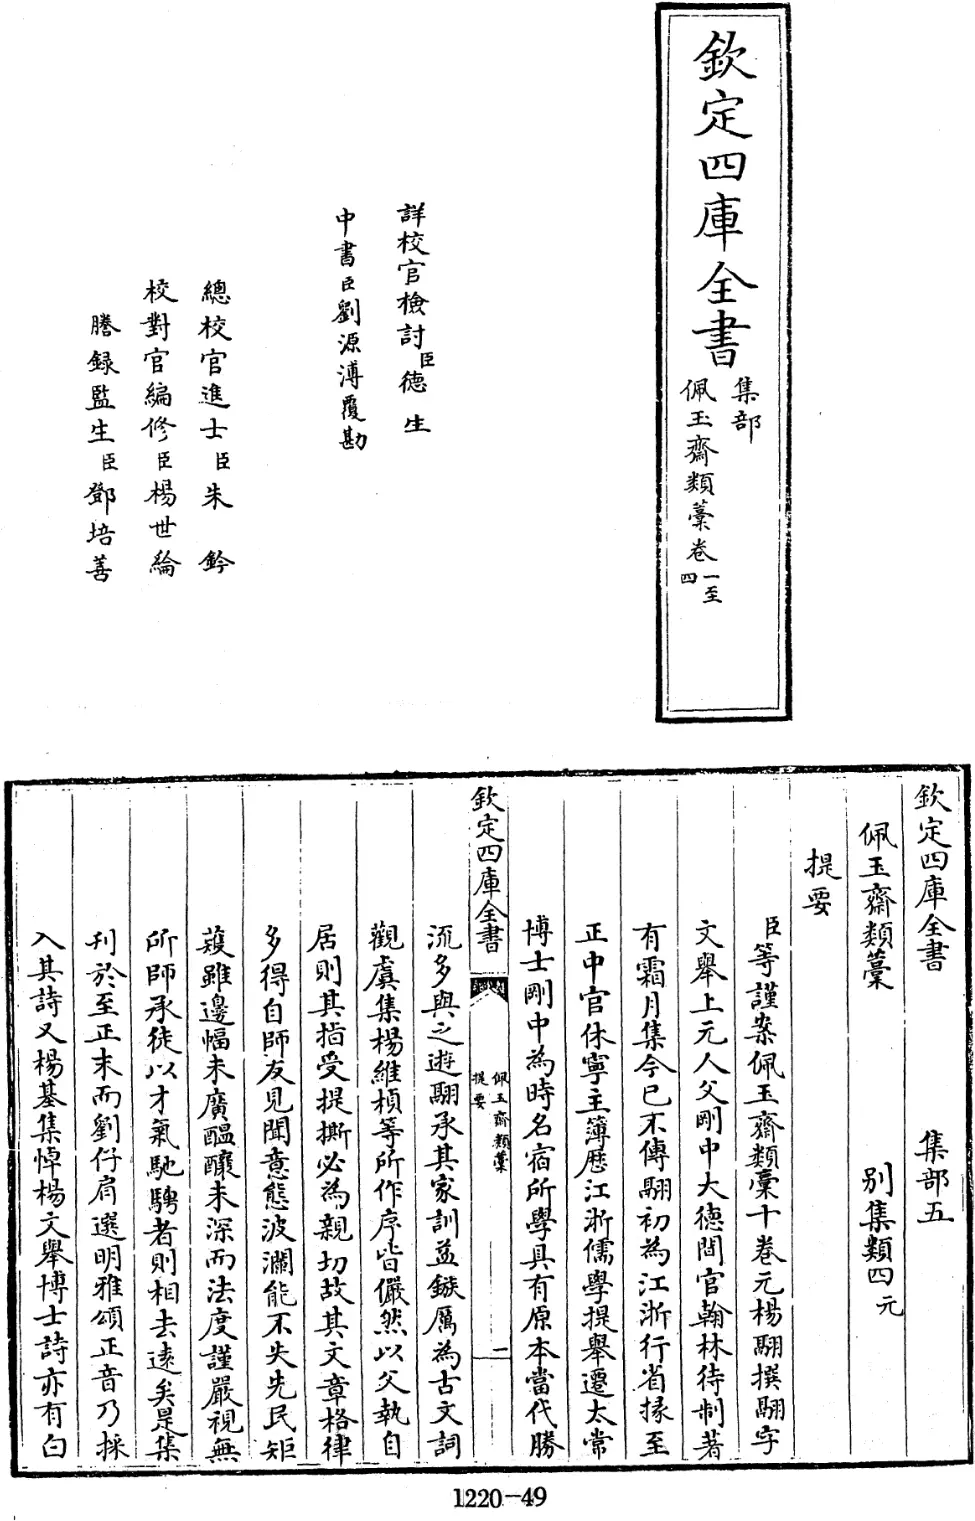 欽定四庫全書
集部
佩玉齋類藁卷一至四
詳校官檢討臣德生
中書臣劉源溥覆勘
總校官進士臣朱鈐
校對官編修臣楊世綸
謄錄監生臣鄧培善
欽定四庫全書 集部五
佩玉齋類藁 別集類四元
提要
臣等謹案佩玉齋類藁十卷元楊翮撰翮字
文舉上元人父剛中大德間官翰林待制著
有霜月集今已不傳翮初為江浙行省掾至
正中官休寧主簿歴江浙儒學提舉遷太常
博士剛中為時名宿所學具有原本當代勝
欽定四庫全書
佩玉齋類藁
提要
二
流多與之遊翮承其家訓益鏃厲為古文詞
觀虞集楊維楨等所作序皆儼然以父執自
居則其指受提撕必為親切故其文章格律
多得自師友見聞意態波瀾能不失先民矩
蒦雖邊幅未廣醖釀未深而法度謹嚴視無
所師承徒以才氣馳騁者則相去遠矣是集
刋於至正末而劉仔肩選明雅頌正音乃採
入其詩又楊基集悼楊文舉博士詩亦有白
1220-49